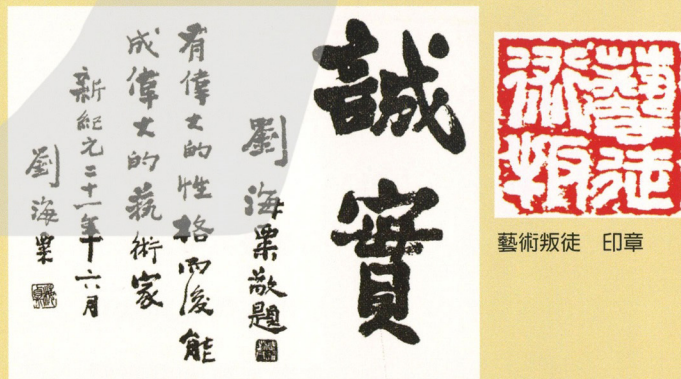 誠實
劉海粟敬題
有偉大的性格而後能
成偉大的藝術家
新紀元二十一年六月
劉海粟
藝術
叛徒
藝術叛徒 印章